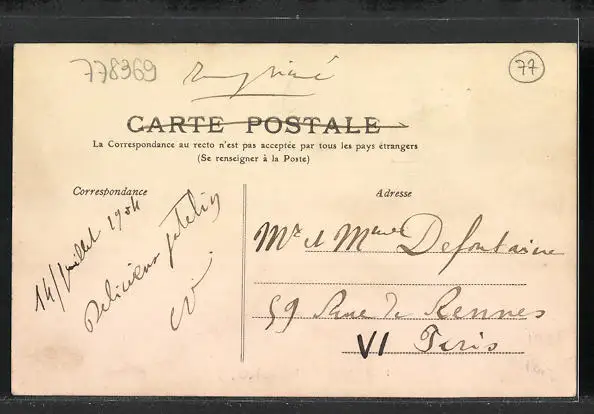 778369
77
CARTE POSTALE
La Correspondance au recto n'est pas acceptée par tous les pays étrangers
(Se renseigner à la Poste)
Correspondance
Adresse
14/juillet 1904
Delicieux
Mr et Mme Defontaine
59 Rue de Rennes
VI Paris